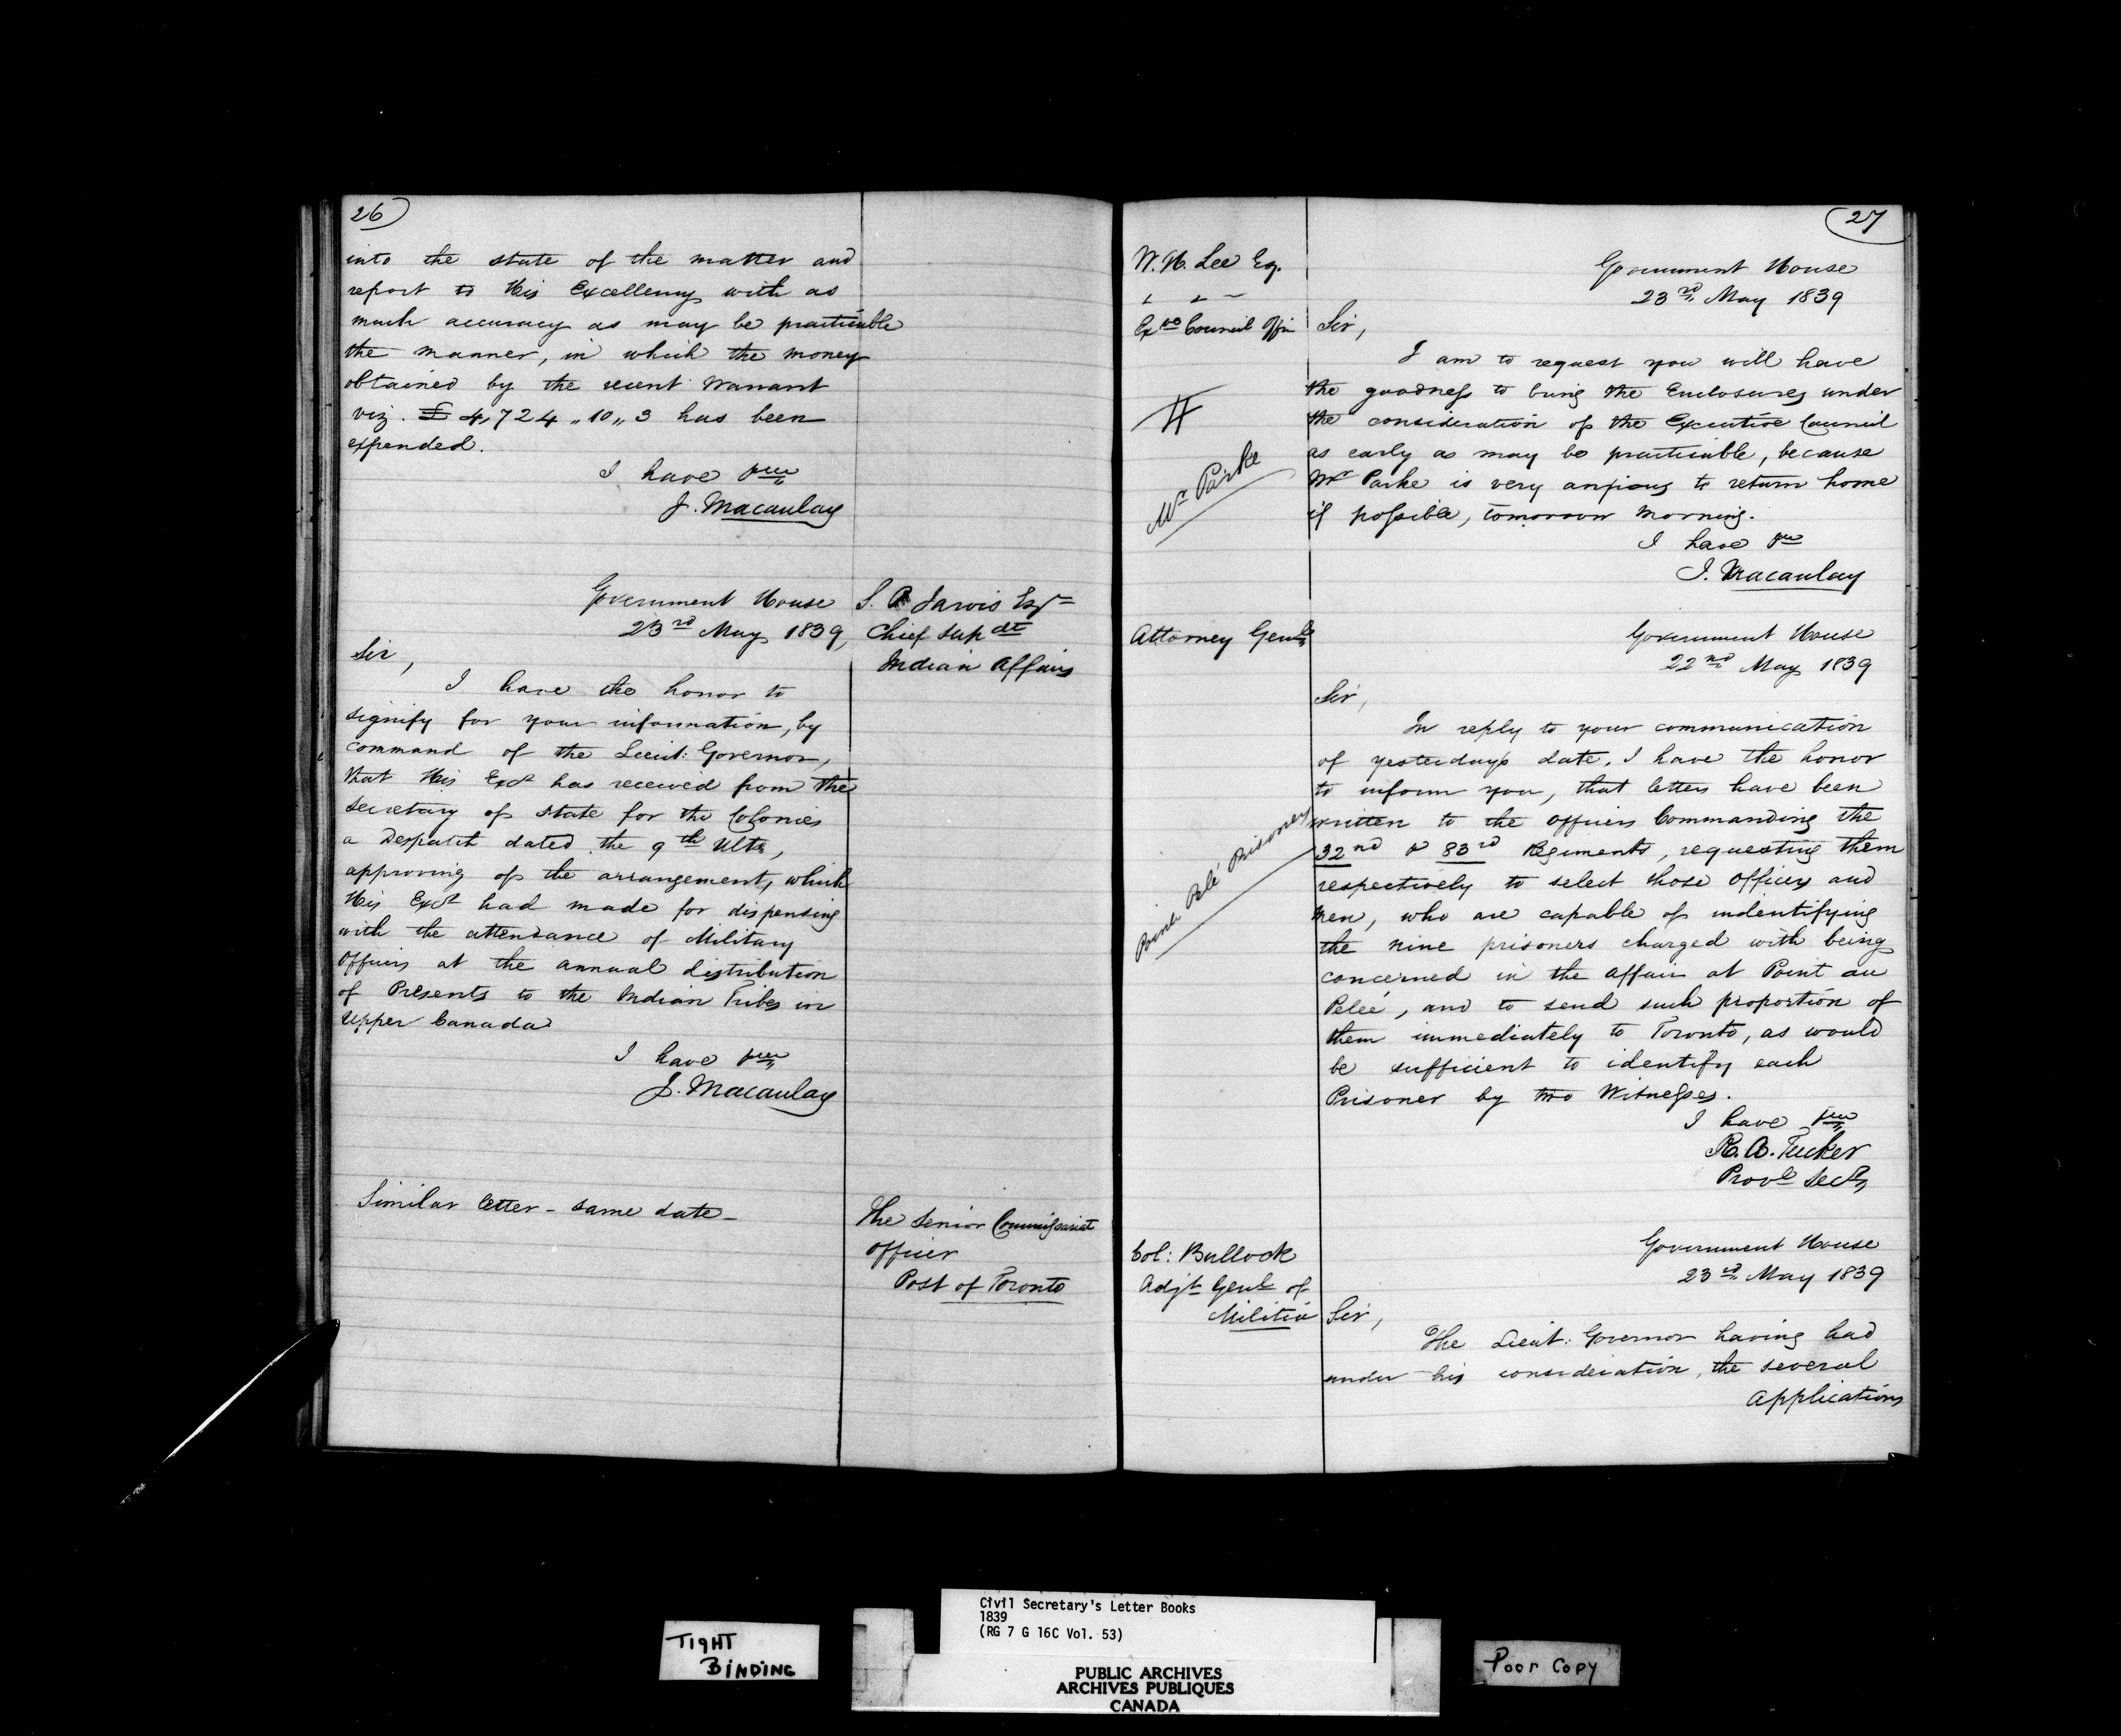 26
into the state of the matter and
report to His Excellency with as
much accuracy as may be practicable
the manner, in which the money
obtained by the recent Warrant
viz. £ 4,724 „ 10 „ 3 has been
expended.
I have &c
J. Macaulay
Government House
23rd May 1839,
S. P. Jarvis Esqr
Chief Supdt
Indian Affairs
Sir,
I have the honor to
signify for your information, by
command of the Lieut: Governor,
that His Excy has received from the
Secretary of State for the Colonies
a Despatch dated the 9th Ulto,
approving of the arrangement, which
His Excy had made for dispensing
with the attendance of Military
Officers at the annual distribution
of Presents to the Indian Tribes in
Upper Canada
I have &c
J. Macaulay
Similar letter - same date -
The Senior Commissariat
Officer
Post of Toronto
27
W. H. Lee Esq.
Exve Council Offi
Government House
23rd May 1839
Sir,
I am to request you will have
the goodness to bring the Enclosures under
the consideration of the Executive Council
as early as may be practicable, because
Mr Parke is very anxious to return home
if possible, tomorrow morning.
I have &c
J. Macaulay
Mr Parke
Attorney Genl
Government House
22nd May 1839
Sir,
In reply to your communication
of yesterdays date, I have the honor
to inform you, that letters have been
written to the Officers Commanding the
32nd & 83rd Regiments, requesting them
respectively to select those Officers and
Men, who are capable of indentifying
the nine prisoners charged with being
concerned in the affair at Point au
Peleé, and to send such proportion of
them immediately to Toronto, as would
be sufficient to identify each
Prisoner by two Witnesses.
I have &c
R. A. Tucker
Provl Secy
Point Pelé Prisoners
Col: Bullock
Adjt Genl of
Militia
Government House
23rd May 1839
Sir,
The Lieut: Governor having had
under his consideration, the several
Applications
TIGHT
BINDING
Civil Secretary's Letter Books
1839
(RG 7 G 16C Vol. 53)
PUBLIC ARCHIVES
ARCHIVES PUBLIQUES
CANADA
Poor Copy